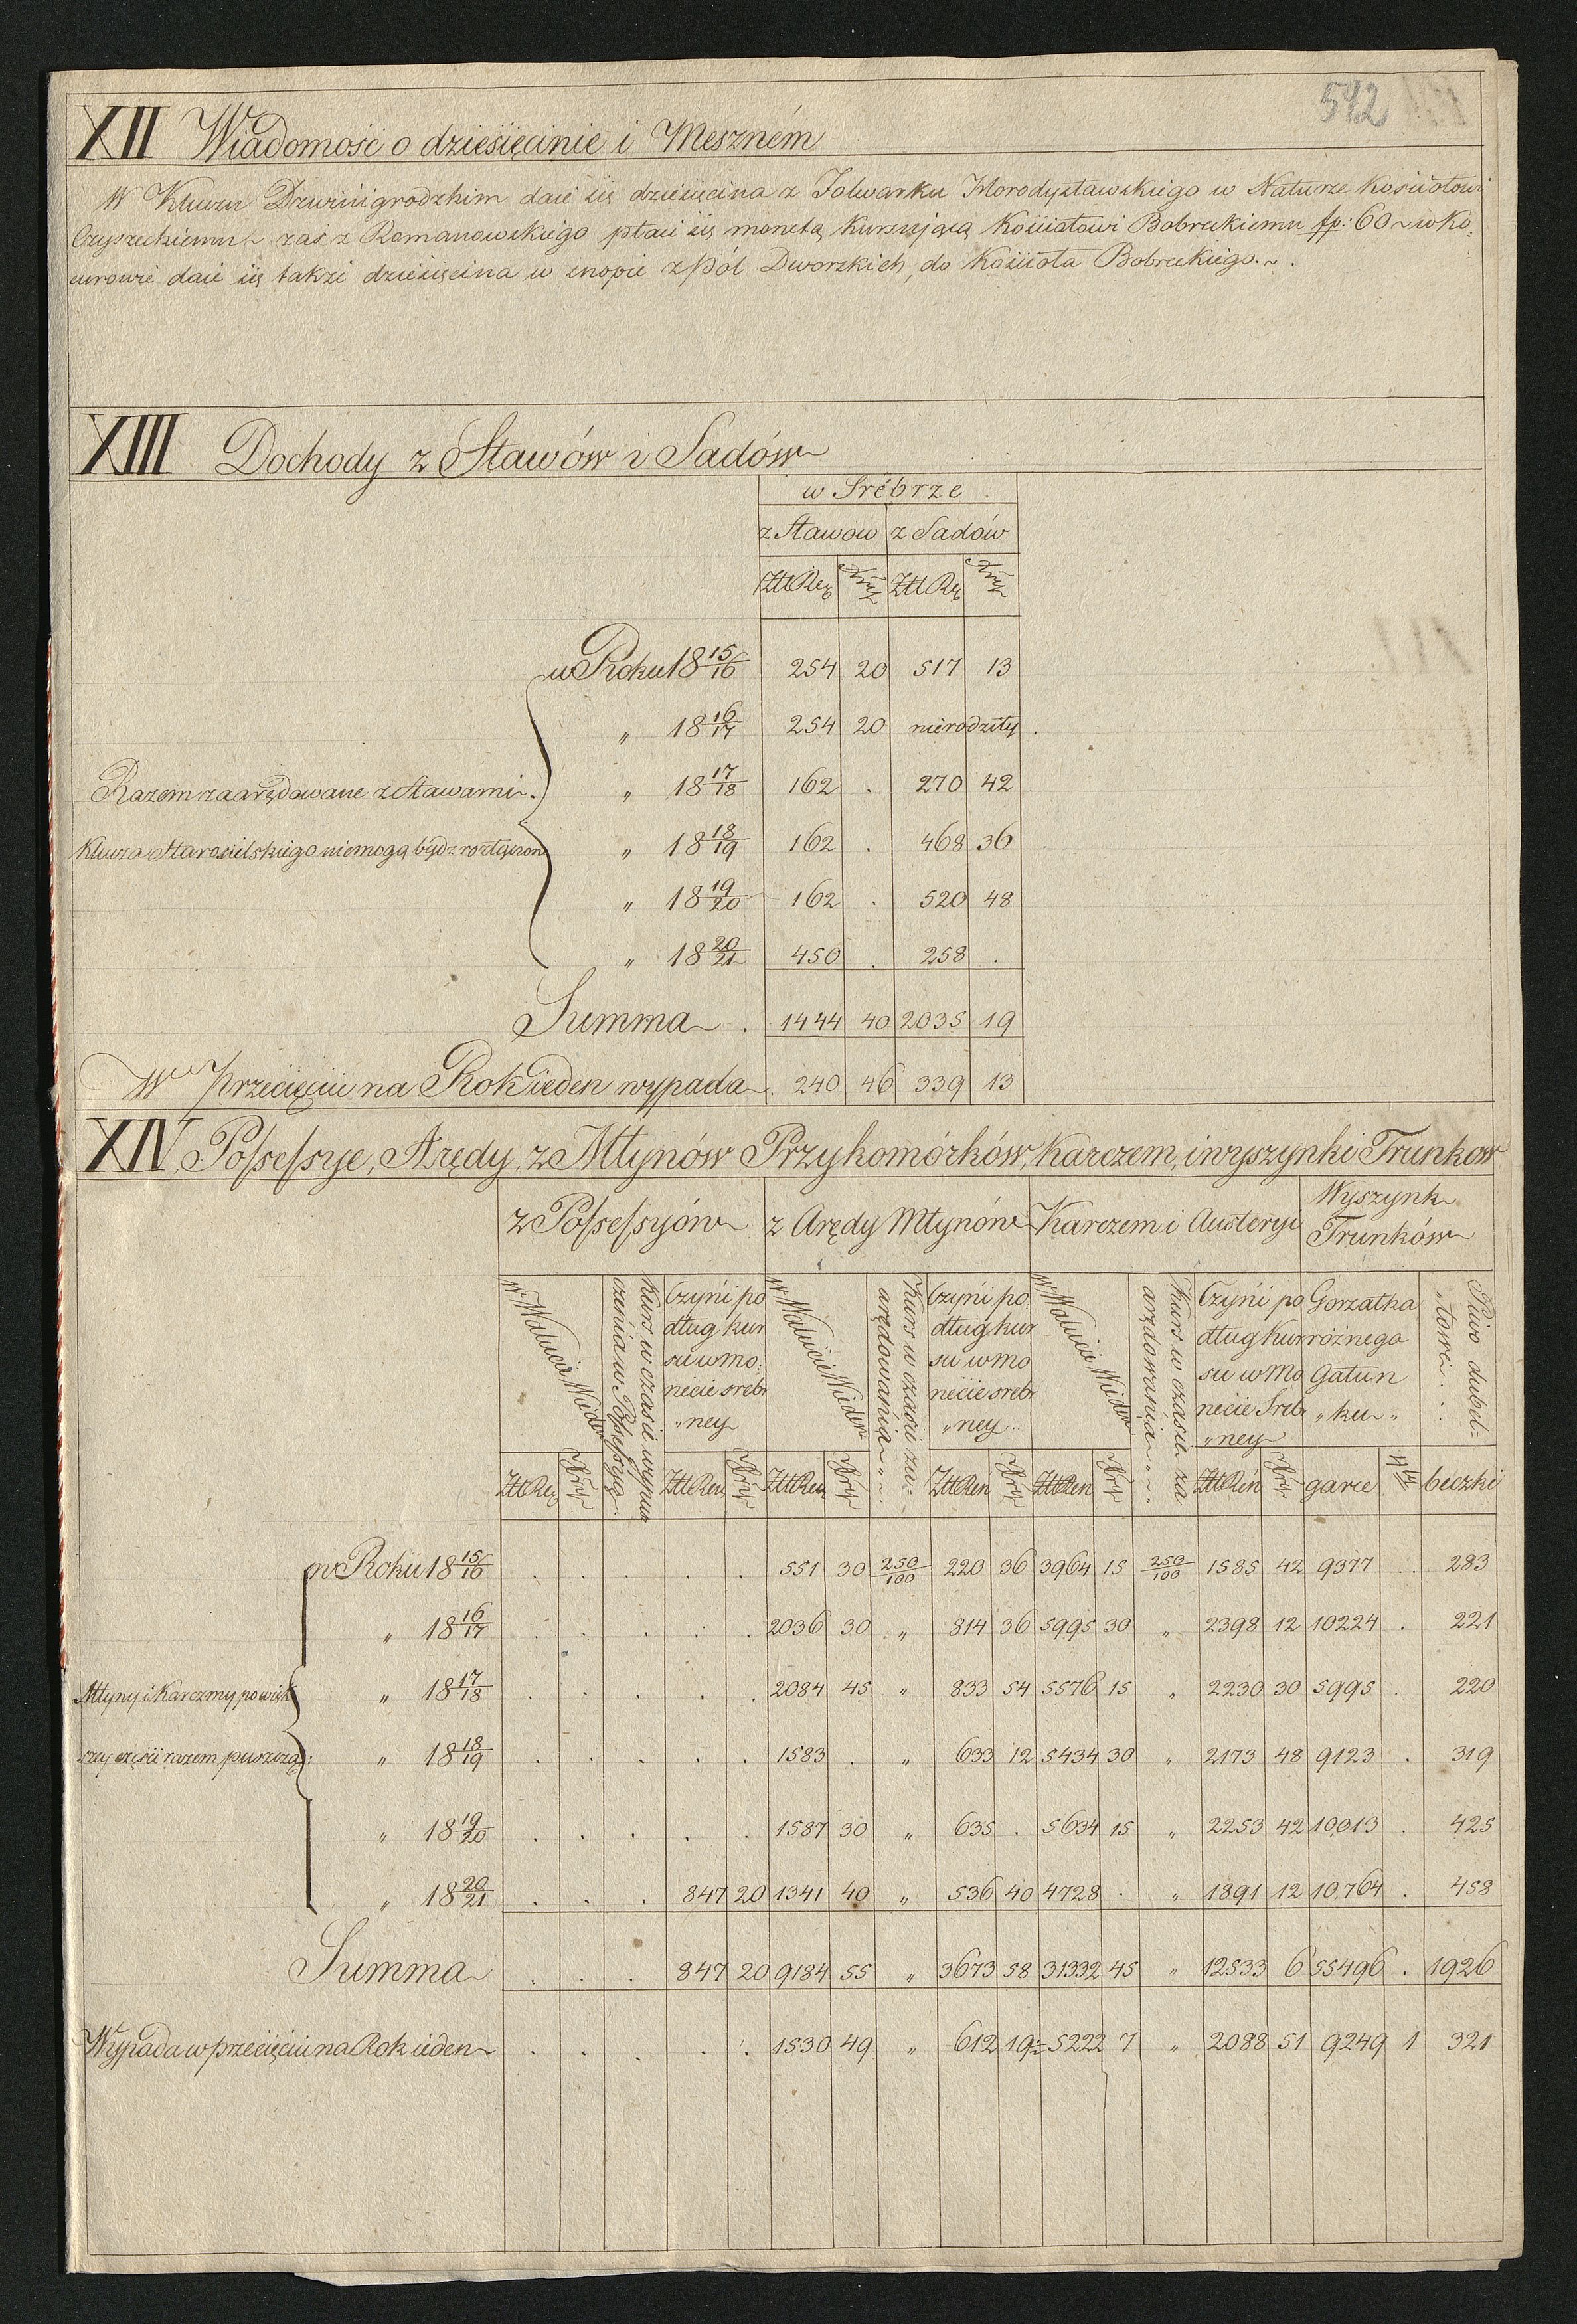 592
XII Wiadomość o dziesięcinie i Meszném
W Kluczu Dzwinigrodzkim daie się dziesięcina z Folwarku Horodysławskiego w Naturze Kościołowi
Czyszeckiemu zaś z Romanowskiego płaci się monetą kurzującą Kościołowi Bobreckiemu fp: 60 w Ko:
curowie daie się także dziesięcina w snopie z pól Dworskich, do Kościoła Bobreckiego.
XIII Dochody z Stawów i Sadów
w Srébrze
z Stawow z Sadów
Ztt Reń Xruy Ztt Rń Xruy
w Roku 18 15/16 254 20 517 13
" 18 16/17 254 20 nierodziły
Razem zaarędowane z Stawami " 18 17/18 162 . 270 42
Klucza Starosielskiego niemogą bydz rozłączone " 18 18/19 162 . 468 36
" 18 19/20 162 . 520 48
" 18 20/21 450 . 258 .
Summa . 1444 40 2035 19
W przecięciu na Rok ieden wypada . 240 46 339 13
XIV Possessye, Arędy, z Młynów Przykomórków, Karczem, i wyszynki Trunkow
z Possessyów z Arędy Młynów Karczem i Austeryi Wyszynk
Trunków
w Walucie Wideń
Kurs w czasie wypusz
czenia w Possessyą
Czyni po
dług kur
su w mo:
nécie srébr
"ney
w Walucie Wideń
Kurs w czasie za:
arędowania
Czyni po
dług kur
su w mo
nécie srebr
"ney
w Walucie Wideń
Kurs w czasie za
arędowania
Czyni po
dług kur
su w Mo
nécie Srebr
"ney
Gorzałka
różnego
Gatun
"ku"
Piwo dubel=
"towe
Ztt Reń Xry Ztt Reń Xry Ztt Reń Xry Ztt Reń Xry Ztt Reń Xry Ztt Reń Xry garce beczki
w Roku 18 15/16 . . . . . 551 30 250/100 220 36 3964 15 250/100 1585 42 9377 . 283
" 18 16/17 . . . . . 2036 30 " 814 36 5995 30 " 2398 12 10224 . 221
Młyny i Karczmy po więk " 18 17/18 . . . . . 2084 45 " 833 54 5576 15 " 2230 30 5995 . 220
szej części razem puszczą: " 18 18/19 . . . . . 1583 . " 633 12 5434 30 " 2173 48 9123 . 319
" 18 19/20 . . . . . 1587 30 " 635 . 5634 15 " 2253 42 10013 . 425
" 18 20/21 . . . 847 20 1341 40 " 536 40 4728 . " 1891 12 10,764 . 458
Summa . . . 847 20 9184 55 " 3673 58 31332 45 " 12533 6 55496 . 1926
Wypada w przecięciu na Rok ieden . . . . . 1530 49 " 612 19 5222 7 " 2088 51 9249 1 321